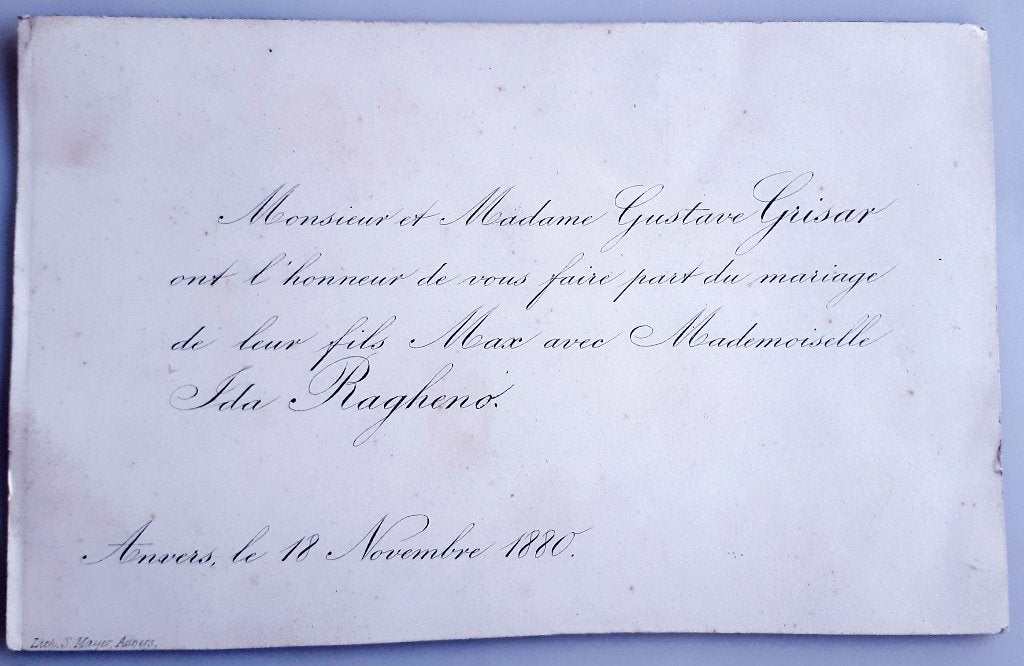 Monsieur et Madame Gustave Grisar
ont l'honneur de vous faire part du mariage
de leur fils Max avec Mademoiselle
Ida Ragheno.
Anvers, le 18 Novembre 1880.
Lith. S. Mayer, Anvers.